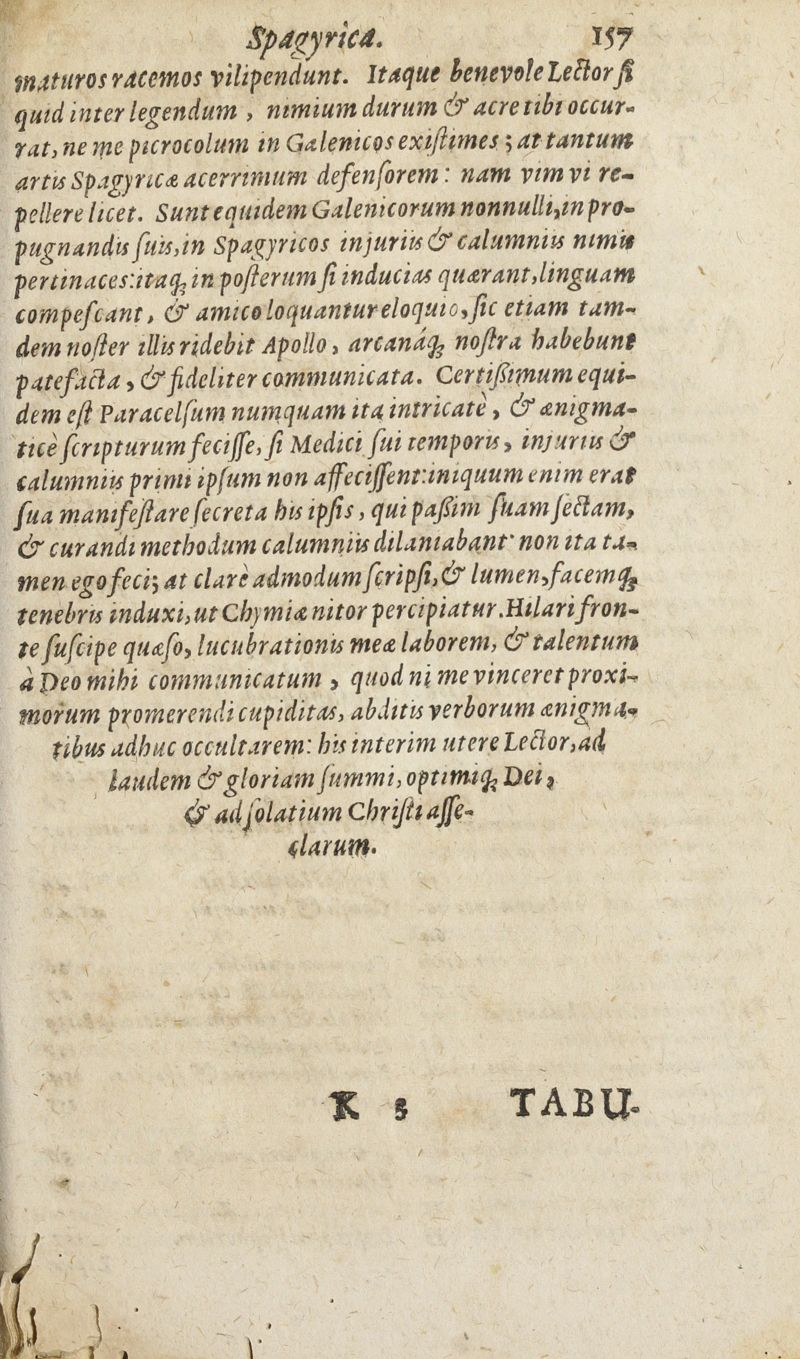 Spagyrica. 157
maturos racemos vilipendunt. Itaque benevole Lector ſi
quid inter legendum, nimium durum & acre tibi occur-
rat, ne me picrocolum in Galenicos exiſtimes; at tantum
artis Spagyricæ acerrimum defenſorem: nam vim vi re-
pellere licet. Sunt equidem Galenicorum nonnulli, in pro-
pugnandis ſuis, in Spagyricos injuriis & calumniis nimis
pertinaces: itaq; in poſterum ſi inducias quærant, linguam
compeſcant, & amico loquantur eloquio, ſic etiam tam-
dem noſter illis ridebit Apollo, arcanáq; noſtra habebunt
patefacta, & fideliter communicata. Certiſsimum equi-
dem eſt Paracelſum numquam ita intricatè, & ænigma-
ticè ſcripturum feciſſe, ſi Medici ſui temporis, injuriis &
calumniis primi ipſum non affeciſſent: iniquum enim erat
ſua manifeſtare ſecreta his ipſis, qui paſsim ſuam ſectam,
& curandi methodum calumniis dilaniabant: non ita ta-
men ego feci; at clarè admodum ſcripſi, & lumen, facemq;
tenebris induxi, ut Chymiæ nitor percipiatur. Hilari fron-
te ſuſcipe quæſo, lucubrationis meæ laborem, & talentum
à Deo mihi communicatum, quod ni me vinceret proxi-
morum promerendi cupiditas, abditis verborum ænigma-
tibus adhuc occultarem: his interim utere Lector, ad
laudem & gloriam ſummi, optimiq; Dei,
& ad ſolatium Chriſti aſſe-
clarum.
K 5 TABU-